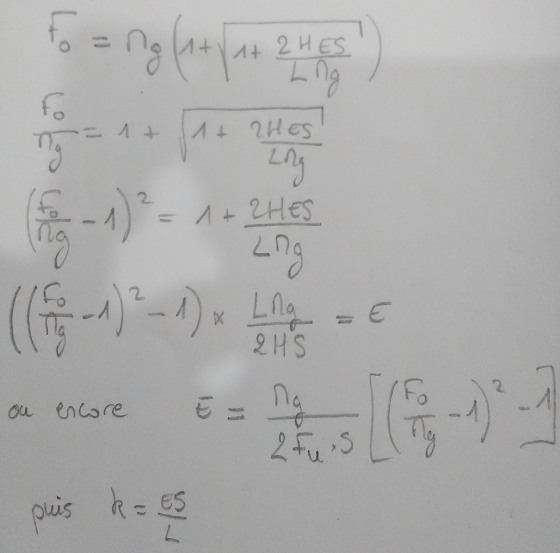 F₀ = Mg(1+√(1+ 2HES/LMg))
F₀/Mg = 1 + √(1 + 2HES/LMg)
(F₀/Mg - 1)² = 1 + 2HES/LMg
((F₀/Mg - 1)² - 1) × LMg/2HS = E
ou encore E = Mg/2Fu.S [(F₀/Mg - 1)² - 1]
puis k = ES/L